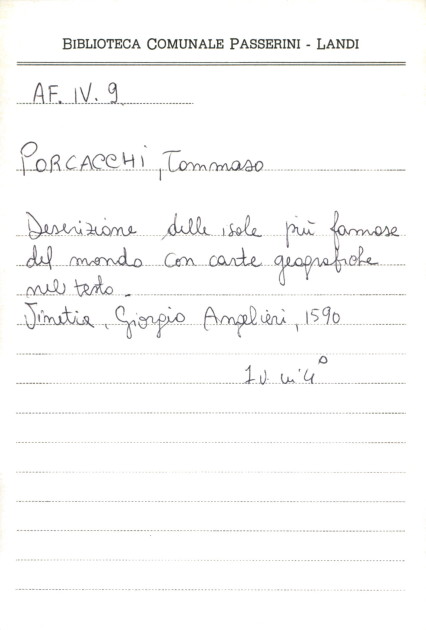 BIBLIOTECA COMUNALE PASSERINI - LANDI
AF. IV. 9
PORCACCHI, Tommaso
Descrizione delle isole più famose
del mondo con carte geografiche
nel testo.
Vinetia, Giorgio Angelieri, 1590
1 v. in 4°